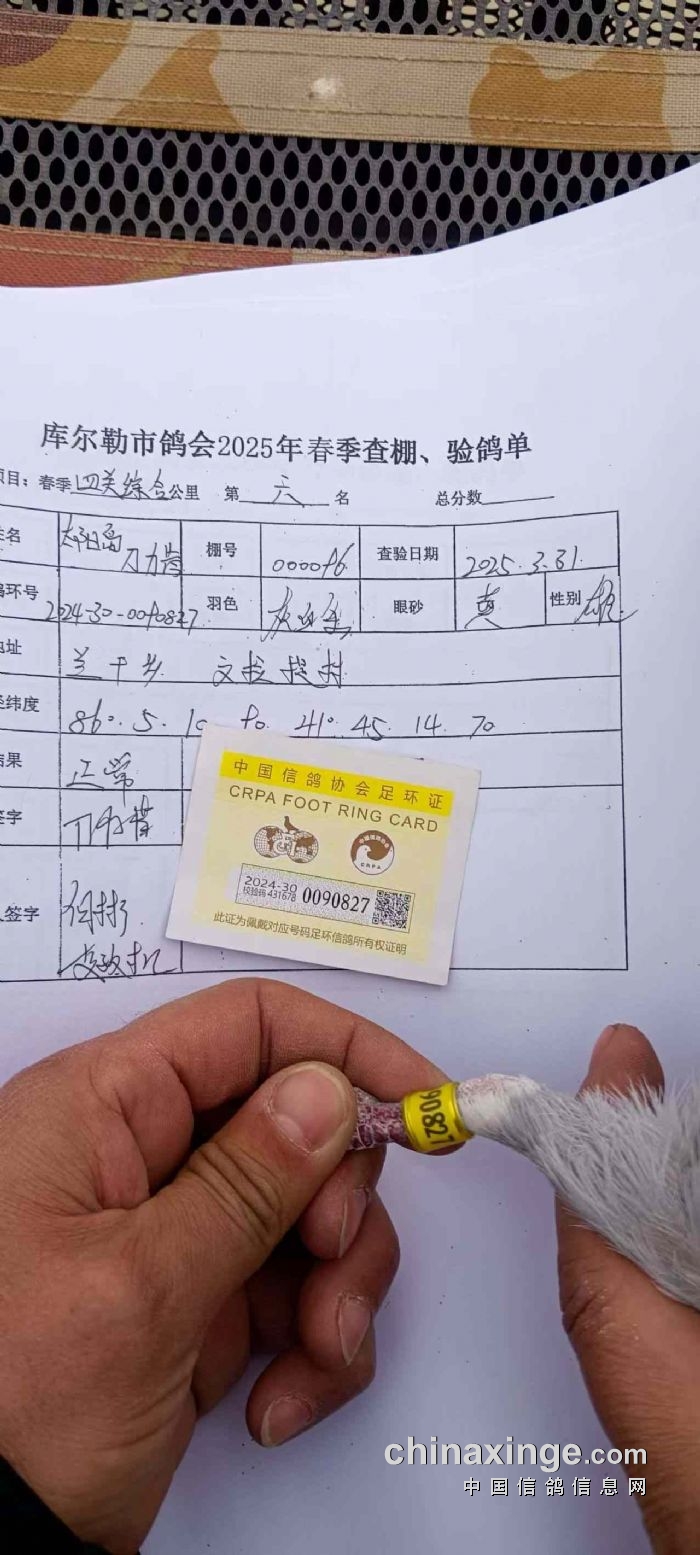 库尔勒市鸽会2025年春季查棚、验鸽单
项目：春季四关综合公里 第 六 名 总分数
姓名 棚号 000096 查验日期 2025.3.31
鸽环号 2024-30-0090827 羽色 眼砂 黄 性别 雄
地址 兰干乡
经纬度 86°. 5. 10. 90. 41°. 45. 14. 70
结果 正常
签字
人签字
中国信鸽协会足环证
CRPA FOOT RING CARD
CRPA
2024-30
校验码 431678
0090827
此证为佩戴对应号码足环信鸽所有权证明
90827
chinaxinge.com
中国信鸽信息网